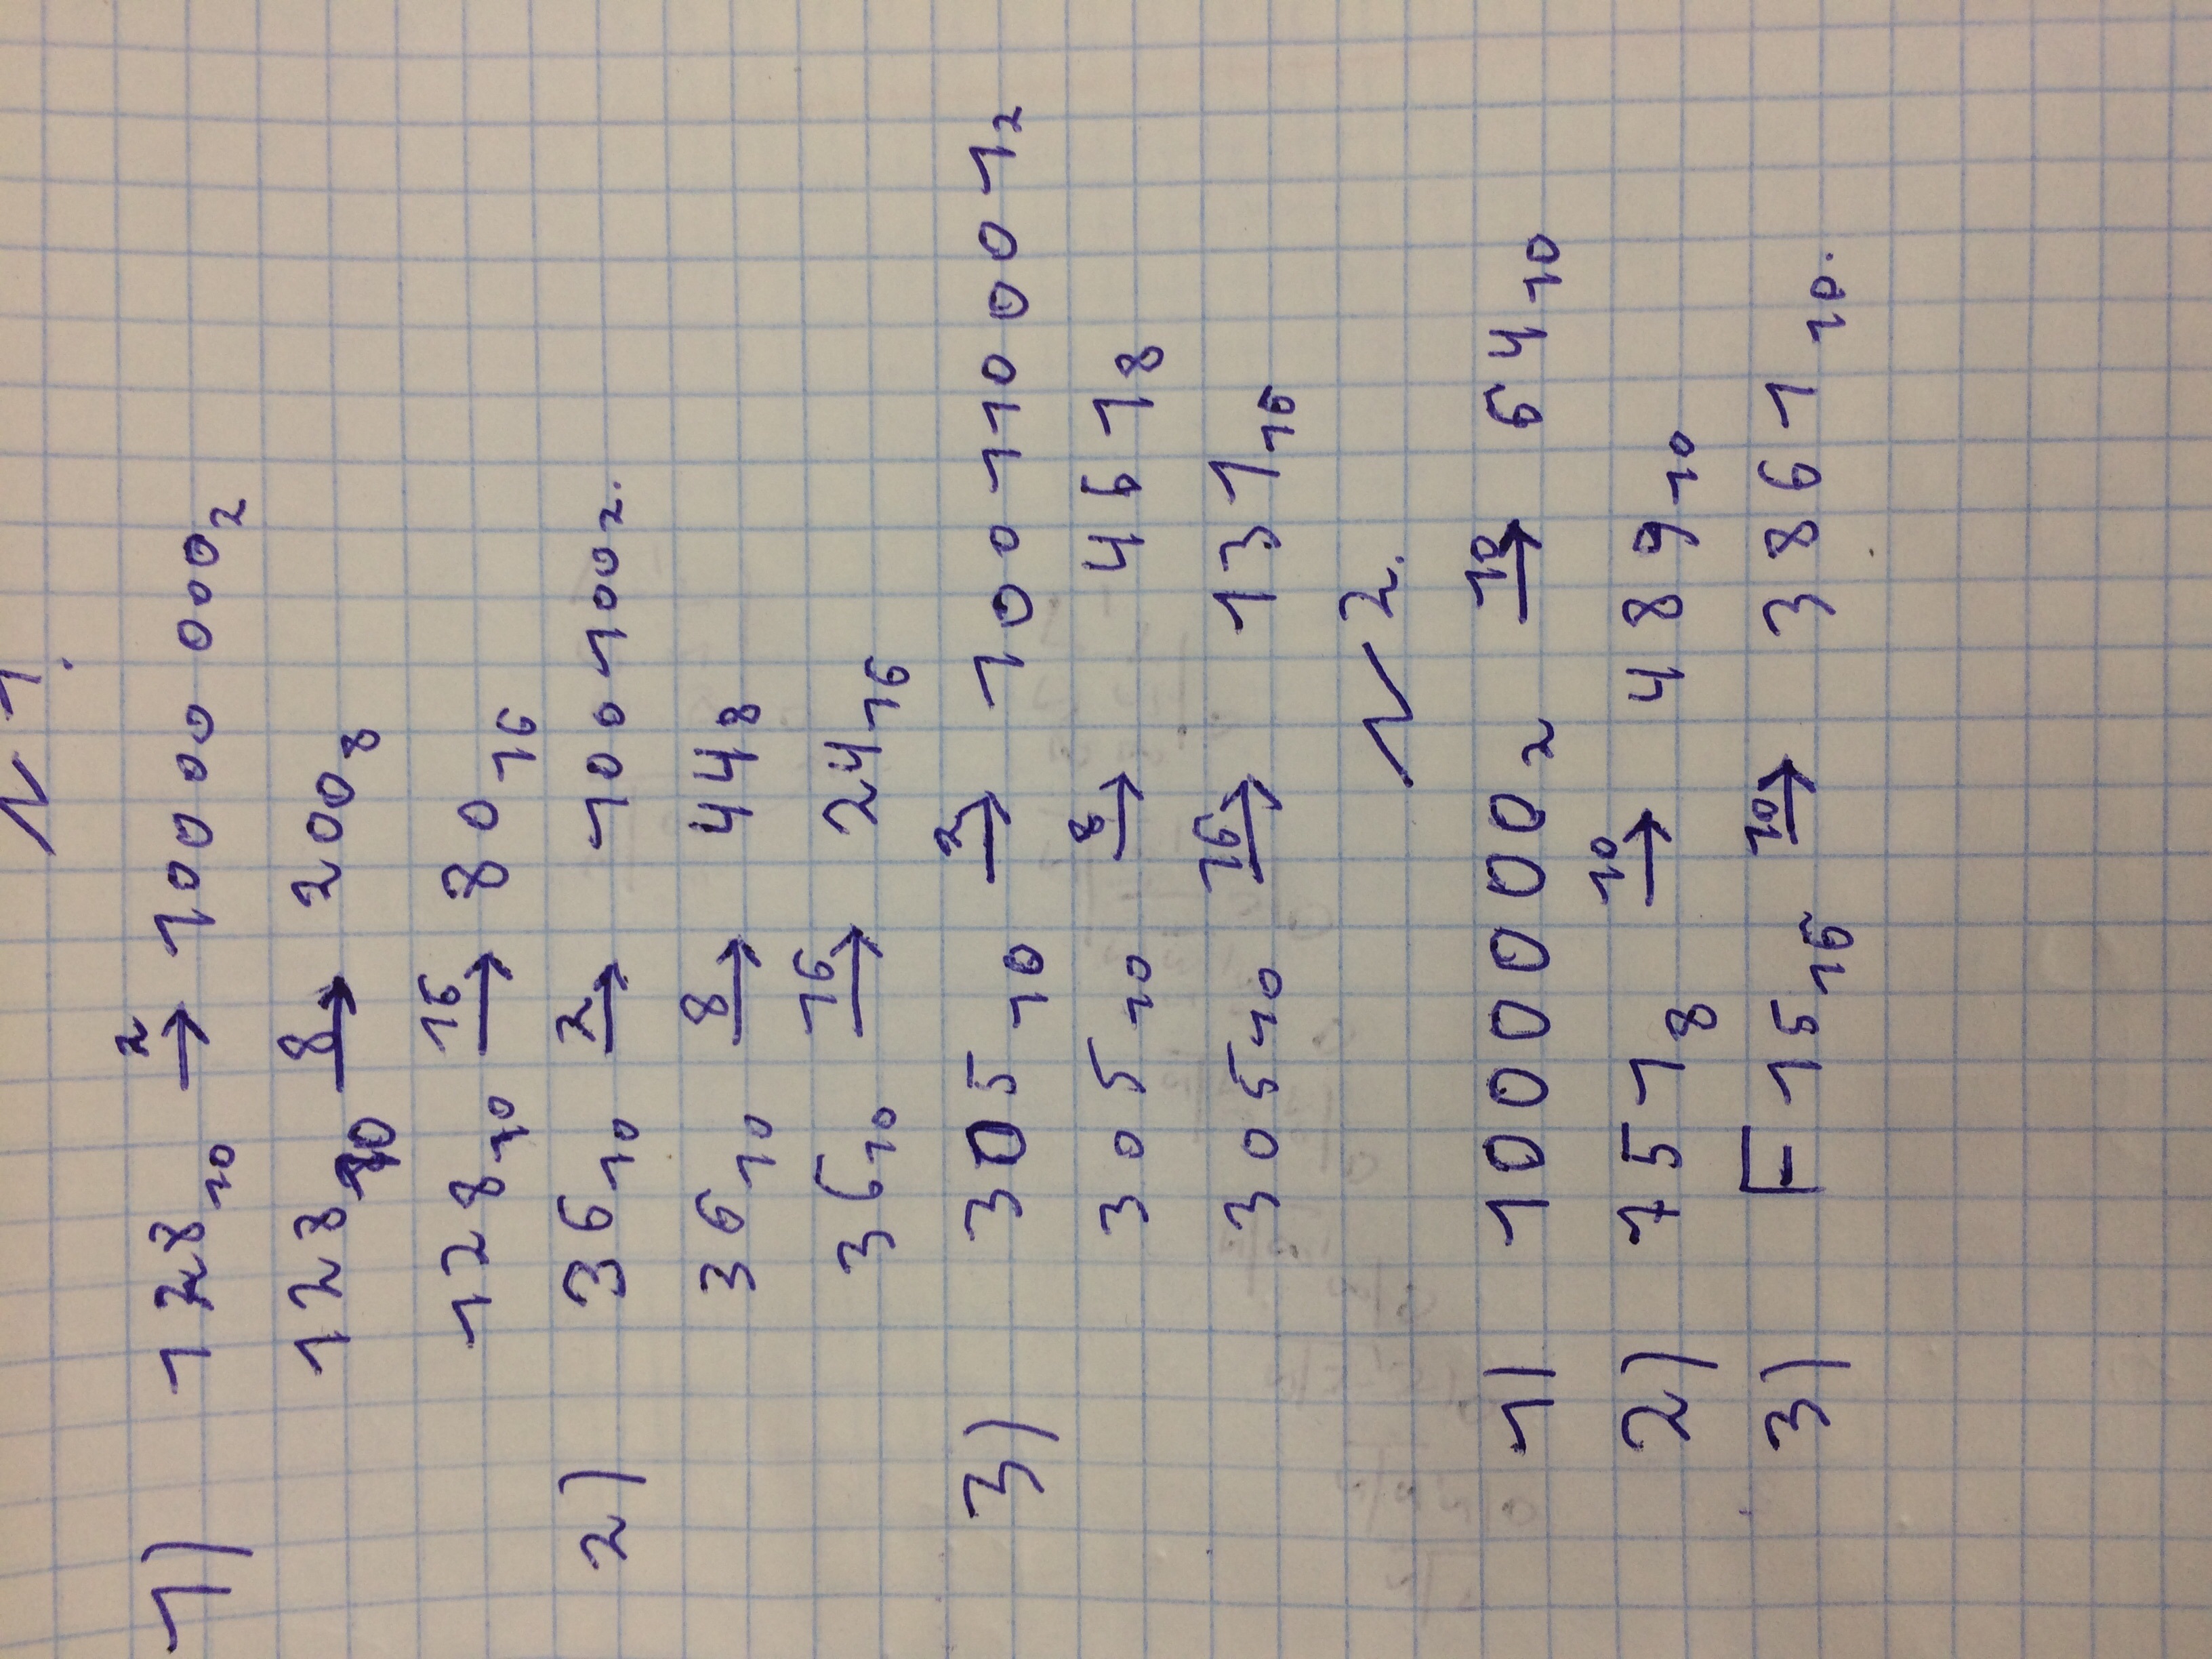 N 1.
1) 128₁₀ ²→ 10000000₂
128₁₀ ⁸→ 200₈
128₁₀ ¹⁶→ 80₁₆
2) 36₁₀ ²→ 100100₂.
36₁₀ ⁸→ 44₈
36₁₀ ¹⁶→ 24₁₆
3) 305₁₀ ²→ 100110001₂
305₁₀ ⁸→ 461₈
305₁₀ ¹⁶→ 131₁₆
N 2.
1) 1000000₂ ¹⁰→ 64₁₀
2) 751₈ ¹⁰→ 489₁₀
3) F15₁₆ ¹⁰→ 3861₁₀.